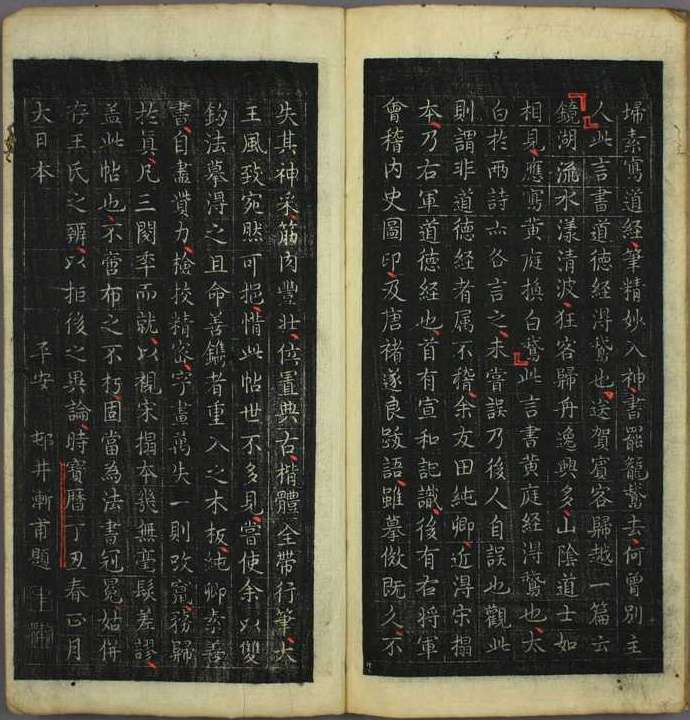 埽素寫道經筆精妙入神書罷籠鵞去何曾別主
人此言書道德經得鵞也送賀賓客歸越一篇云
鏡湖流水漾清波狂客歸舟逸興多山陰道士如
相見應寫黃庭換白鵞此言書黃庭經得鵞也太
白於兩詩亦各言之未嘗誤乃後人自誤也觀此
則謂非道德經者属不稽余友田純卿近得宋搨
本乃右軍道德經也首有宣和記識後有右將軍
會稽內史圖印及唐褚遂良跋語雖摹倣既久不
失其神采筋肉豐壯位置典古楷體全帶行筆大
王風致宛然可挹惜此帖世不多見嘗使余以雙
鈎法摹得之且命善鐫者重入之木板純卿素善
書自盡貲力檢挍精密字畫萬失一則改竄務歸
於真凡三閱年而就以視宋搨本幾無毫髮差謬
盖此帖也不啻布之不朽固當為法書冠冕姑倂
存王氏之辨以拒後之異論時寶曆丁丑春正月
大日本 平安 邨井漸甫題